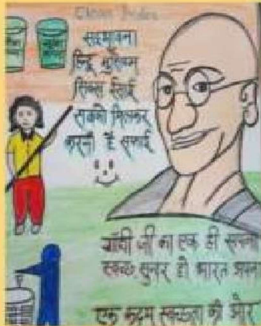 Clean India
सद्भावना
हिन्दू मुस्लिम
सिक्ख ईसाई
सबको मिलकर
करनी है सफाई
गाँधी जी का एक ही सपना
स्वच्छ सुन्दर हो भारत अपना
एक कदम स्वच्छता की ओर